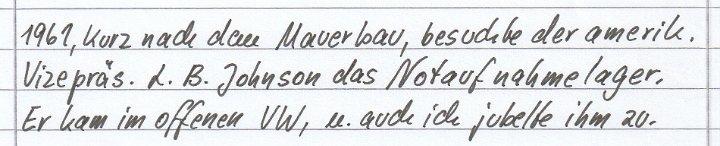 1961, kurz nach dem Mauerbau, besuchte der amerik.
Vizepräs. L. B. Johnson das Notaufnahmelager.
Er kam im offenen VW, u. auch ich jubelte ihm zu.